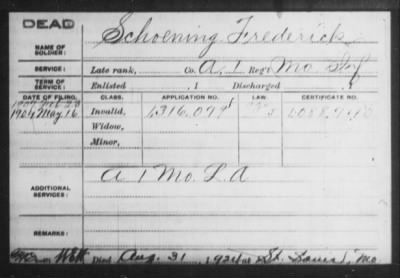 DEAD
NAME OF SOLDIER: Schoening Frederick
SERVICE: Late rank, Co. A, 1 Reg't Mo. Inf
TERM OF SERVICE: Enlisted , 1 Discharged , 1
DATE OF FILING. CLASS. APPLICATION NO. LAW. CERTIFICATE NO.
1904 May 16 Invalid, 1316.079
Widow,
Minor,
ADDITIONAL SERVICES: A 1 Mo. L. A
REMARKS:
Died Aug. 31, 1924 at St. Louis, Mo.